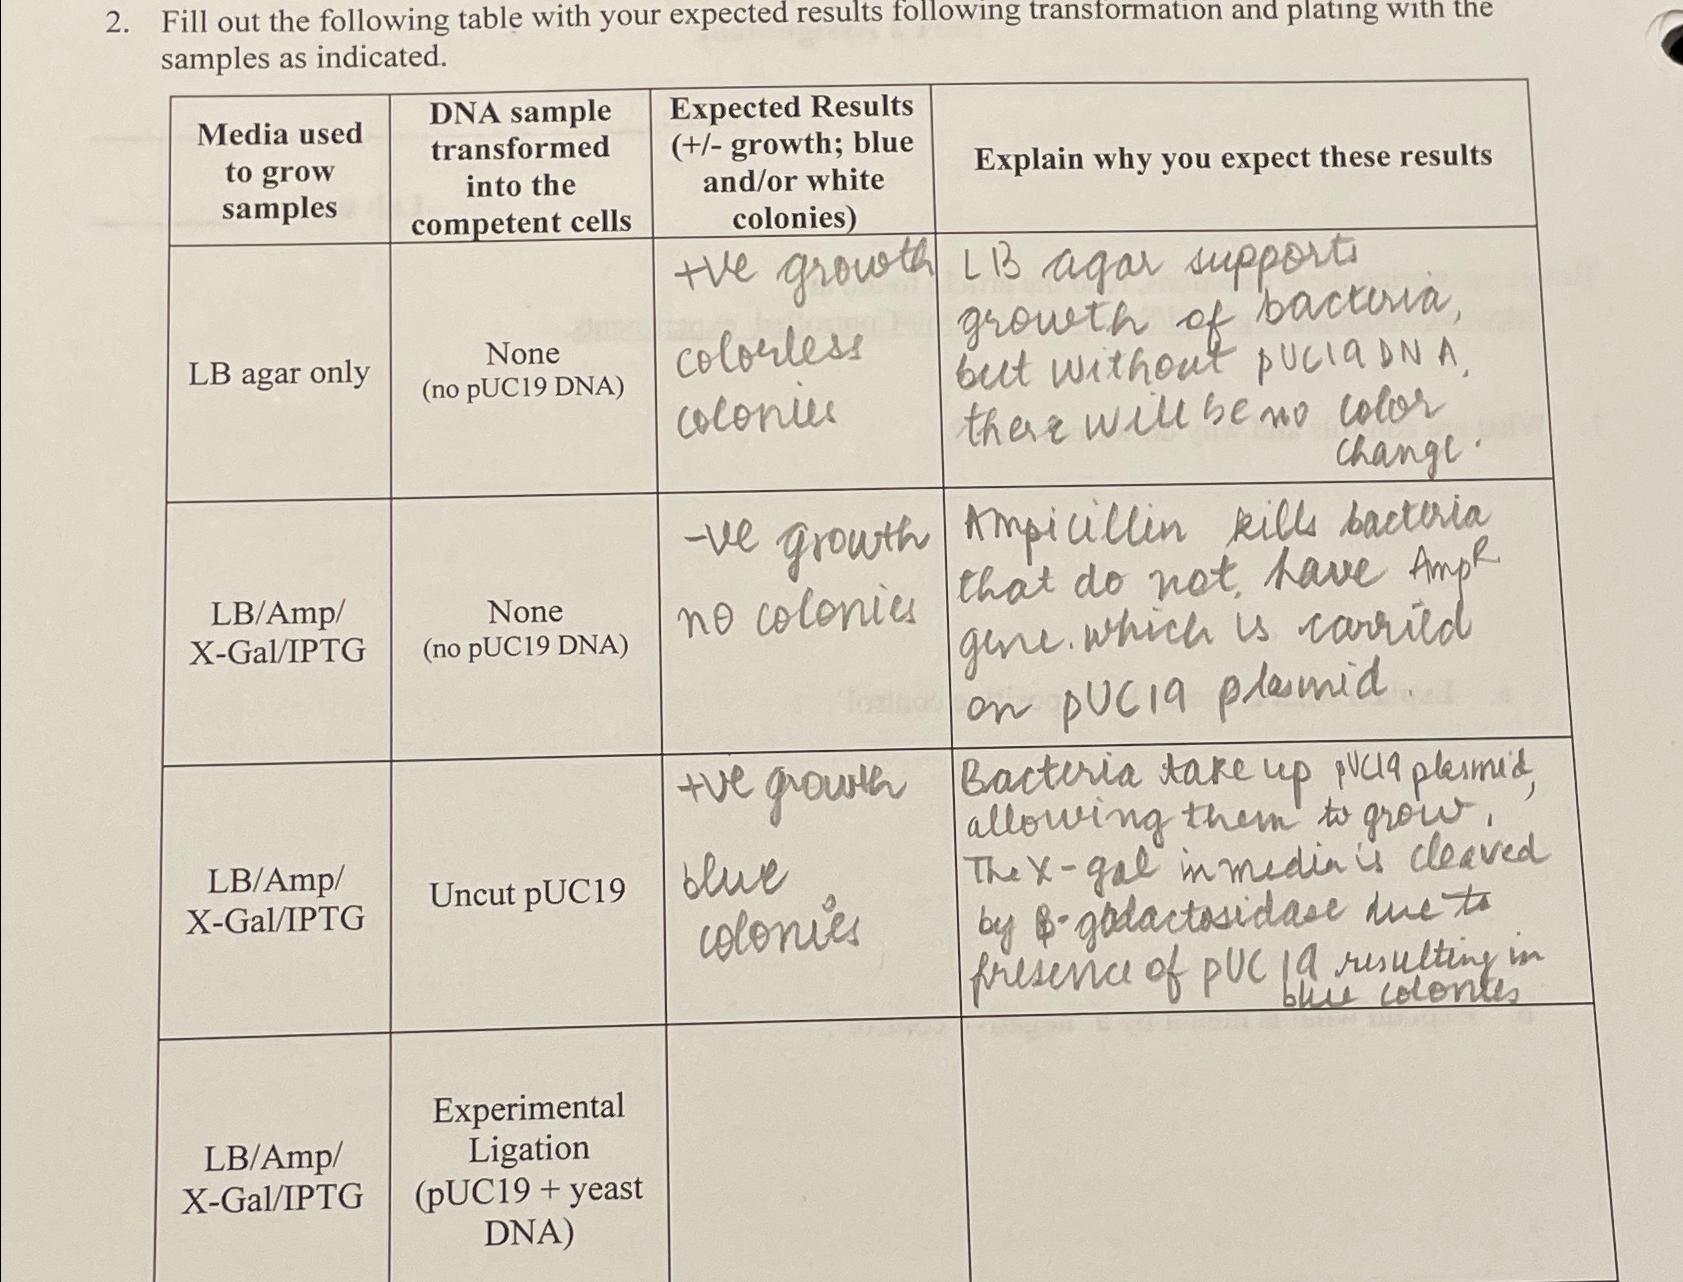 2. Fill out the following table with your expected results following transformation and plating with the
samples as indicated.
Media used
to grow
samples
DNA sample
transformed
into the
competent cells
Expected Results
(+/- growth; blue
and/or white
colonies)
Explain why you expect these results
LB agar only
None
(no pUC19 DNA)
+ve growth
colorless
colonies
LB agar supports
growth of bacteria,
but without pUC19 DNA,
there will be no color
change.
LB/Amp/
X-Gal/IPTG
None
(no pUC19 DNA)
-ve growth
no colonies
Ampicillin kills bacteria
that do not have Amp^R
gene. which is carried
on pUC19 plasmid.
LB/Amp/
X-Gal/IPTG
Uncut pUC19
+ve growth
blue
colonies
Bacteria take up pUC19 plasmid,
allowing them to grow,
The X-gal in media is cleaved
by β-galactosidase due to
presence of pUC19 resulting in
blue colonies
LB/Amp/
X-Gal/IPTG
Experimental
Ligation
(pUC19 + yeast
DNA)